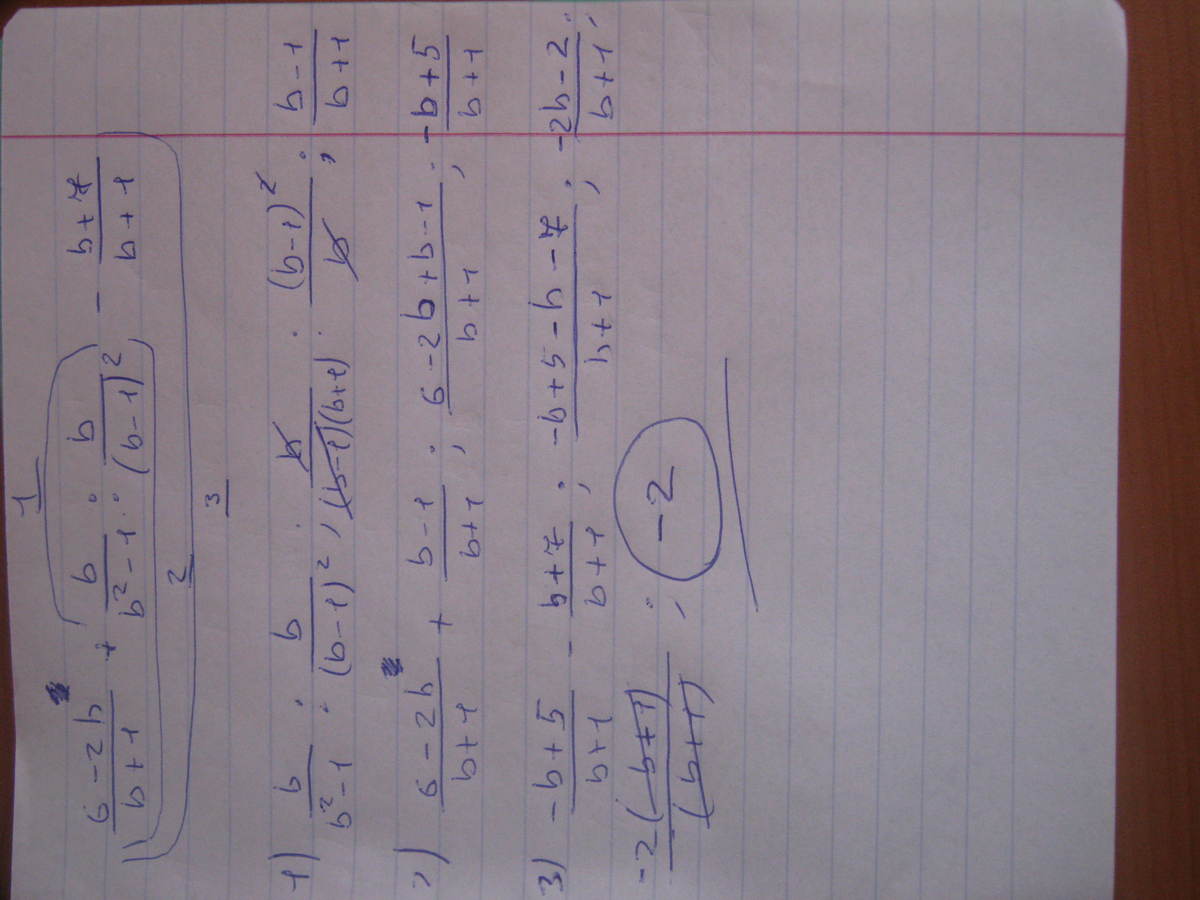 1
(6-2b)/(b+1) + b/(b²-1) : b/(b-1)² - (b+7)/(b+1)
2
3
1) b/(b²-1) : b/(b-1)²; b/((b-1)(b+1)) · (b-1)²/b; (b-1)/(b+1)
2) (6-2b)/(b+1) + (b-1)/(b+1); (6-2b+b-1)/(b+1); (-b+5)/(b+1)
3) (-b+5)/(b+1) - (b+7)/(b+1); (-b+5-b-7)/(b+1); (-2b-2)/(b+1);
-2(b+1)/(b+1); -2